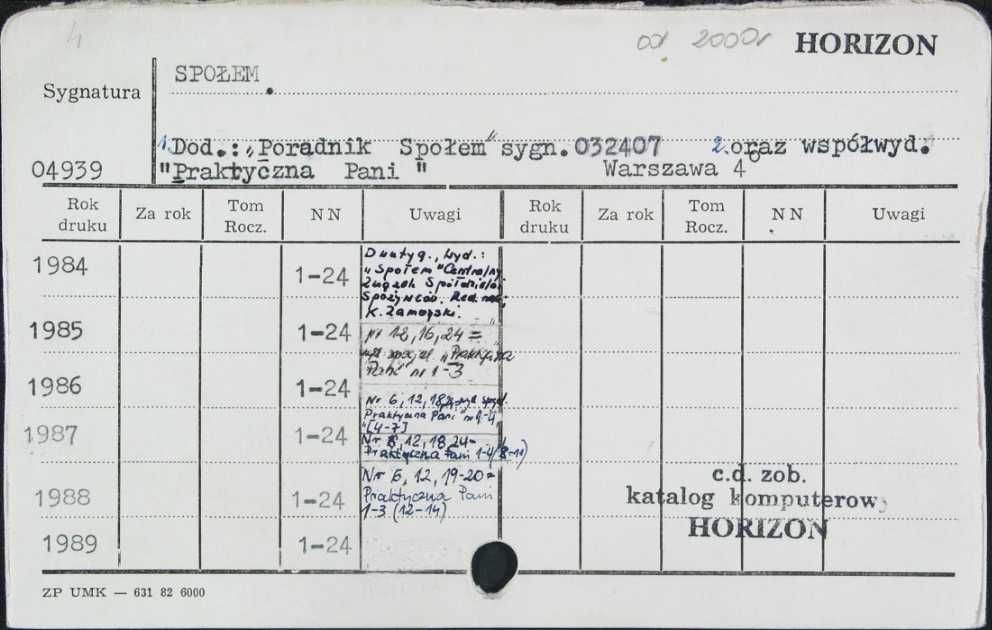 4
od 2000r HORIZON
Sygnatura SPOŁEM.
1. Dod.: „Poradnik Społem" sygn. 032407 2. oraz współwyd.
04939 "Praktyczna Pani" Warszawa 4°
Rok druku Za rok Tom Rocz. NN Uwagi Rok druku Za rok Tom Rocz. NN Uwagi
1984 1-24 Dwutyg., Wyd.:
„Społem" Centralny
Związek Spółdzielni
Spożywców. Red. nac.:
K. Zamorski.
1985 1-24 nr 12, 16, 24 =
„Praktyczna
Pani" nr 1-3
1986 1-24 Nr 6, 12, 18,
Praktyczna Pani" nr 1-4
[4-7]
1987 1-24 Nr 8, 12, 18 24 =
Praktyczna Pani 1-4 (8-11)
1988 1-24 Nr 6, 12, 19-20 =
Praktyczna Pani
1-3 (12-14)
1989 1-24
c.d. zob.
katalog komputerowy
HORIZON
ZP UMK — 631 82 6000